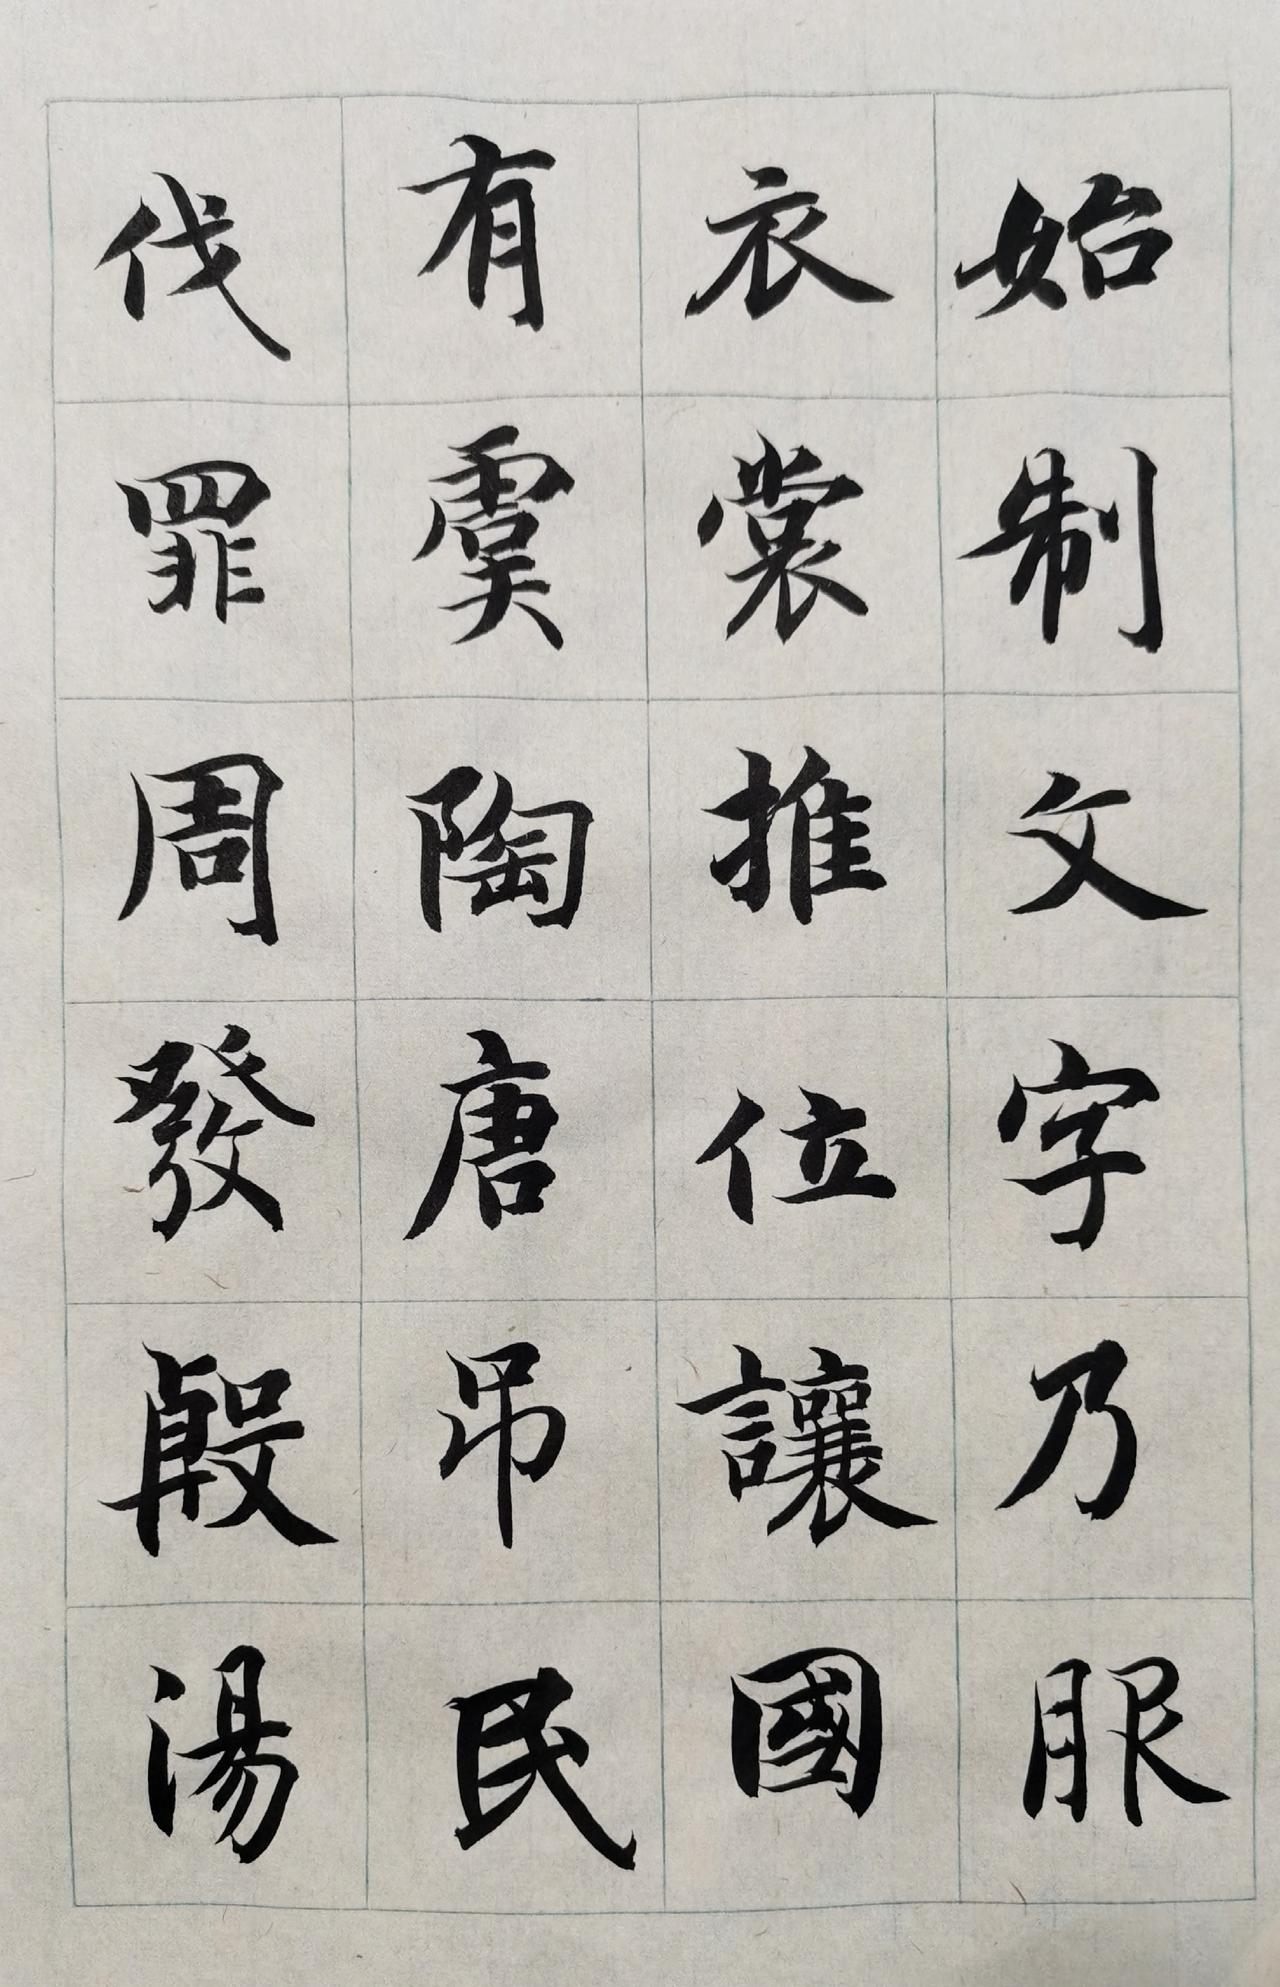 始制文字乃服
衣裳推位讓國
有虞陶唐吊民
伐罪周發殷湯